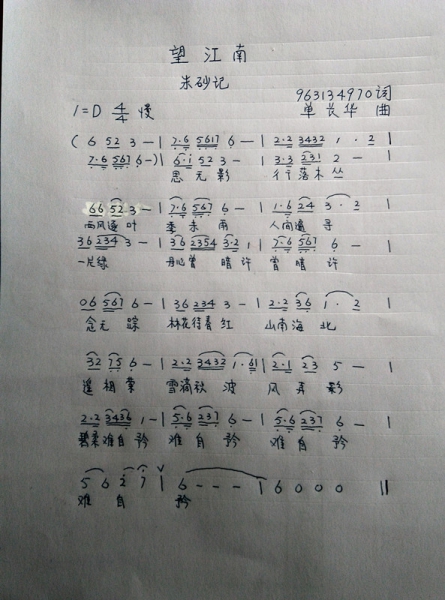 望江南
朱砂记
963134970词
1=D 4/4 慢 单长华 曲
( 6 52 3 - | 7·6 5617 6 - | 2·2 3432 1 · 2 |
7·6 567 6 - ) | 6·i 52 3 - | 3·3 231 2 - |
思无影 行落木丛
66 52 3 - | 7·6 567 6 - | 1·6 24 3 · 2 |
西风遥叶 季未南 人间遥寻
36 234 3 - | 36 2354 3·2 1 | 7·6 567 6 - |
一片绿 丹心曾暗许 曾暗许
06 567 6 - | 36 234 3 - | 2·2 36 1 · 2 |
念无踪 林花待春红 山南海北
32 75 6 - | 2·2 3432 1·61 | 2·1 23 5 - |
遥相望 雪满秋波 风弄影
2·2 3436 1 - | 5·6 237 6 - | 5·6 237 6 - |
难自矜 难自矜 难自矜
5 6 2 7 | 6 - - - | 6 0 0 0 ||
难自矜